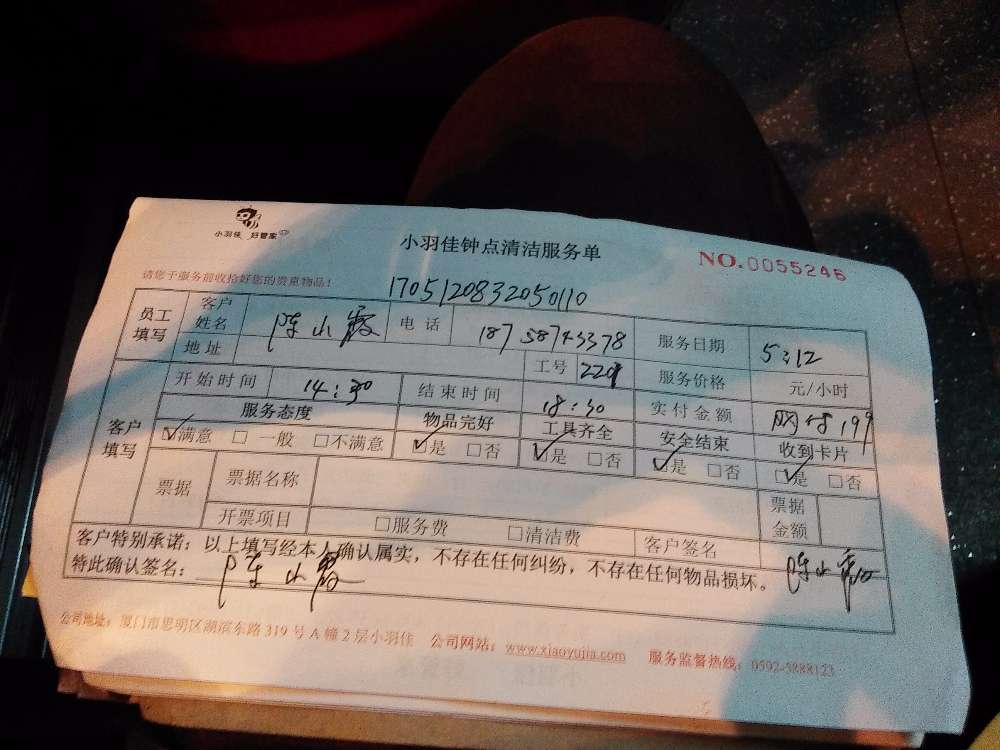 小羽佳 好管家
小羽佳钟点清洁服务单
NO.0055245
请您于服务前收拾好您的贵重物品!
1705120832050110
员工填写 客户姓名 陈小霞 电话 18758743378 服务日期 5:12
地址 工号 2209 服务价格 元/小时
客户填写 开始时间 14:30 结束时间 18:30 实付金额 网付199
服务态度 物品完好 工具齐全 安全结束 收到卡片
☑满意 □一般 □不满意 ☑是 □否 ☑是 □否 ☑是 □否 ☑是 □否
票据 票据名称 票据金额
开票项目 □服务费 □清洁费 客户签名 陈小霞
客户特别承诺:以上填写经本人确认属实,不存在任何纠纷,不存在任何物品损坏。
特此确认签名: 陈小霞
公司地址:厦门市思明区湖滨东路319号A幢2层小羽佳 公司网站:www.xiaoyujia.com 服务监督热线:0592-5888123